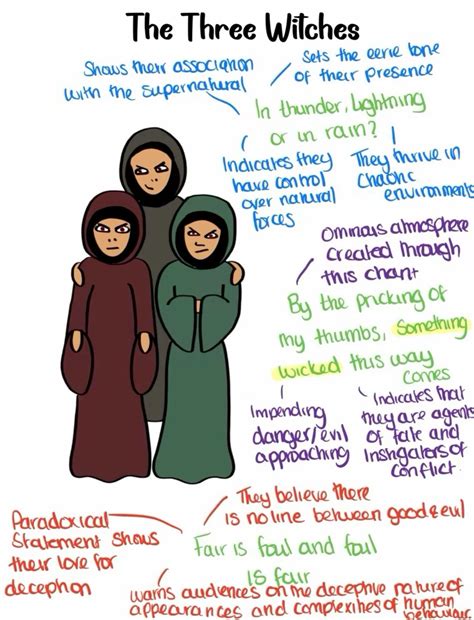 The Three Witches
Shows their association
with the supernatural
Sets the eerie tone
of their presence
In thunder, lightning
or in rain?
Indicates they
have control
over natural
forces
They thrive in
Chaotic
environments
Ominous atmosphere
created through
this chant
By the pricking of
my thumbs, Something
wicked this way
comes
Impending
danger/evil
approaching
Indicates that
they are agents
of fate and
Instigators of
Conflict
They believe there
is no line between good & evil
Paradoxical
Statement shows
their love for
deception
Fair is foul and foul
is fair
warns audiences on the deceptive nature of
appearances and complexities of human
behaviour